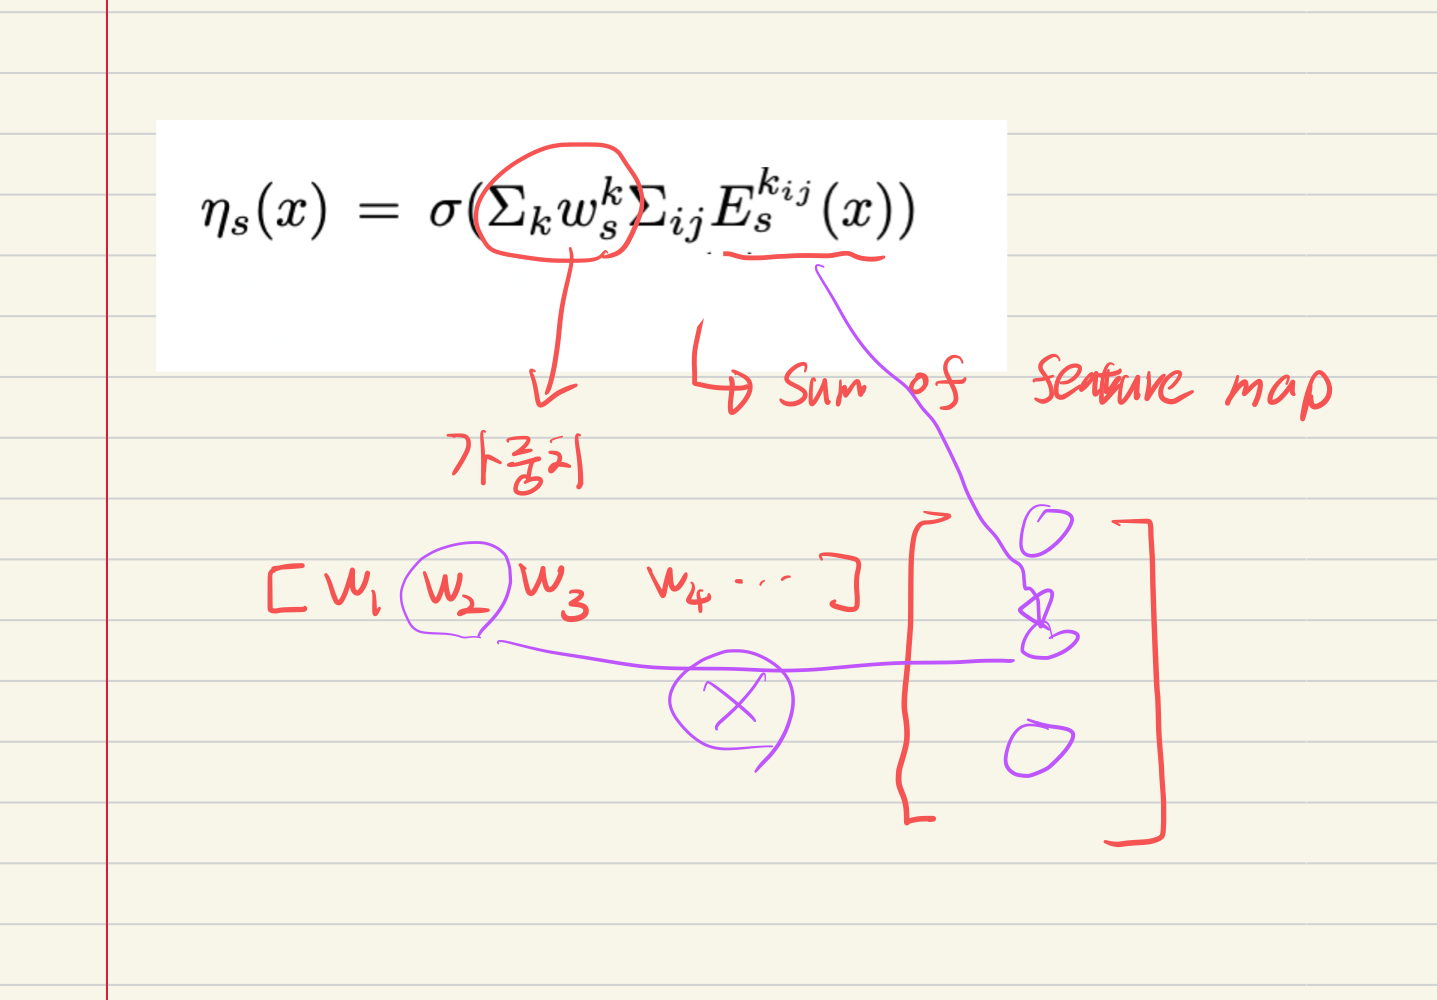 η_s(x) = σ(Σ_k w_s^k Σ_{ij} E_s^{k_{ij}}(x))
Sum of feature map
가중치
[ W₁ W₂ W₃ W₄ ... ]
X